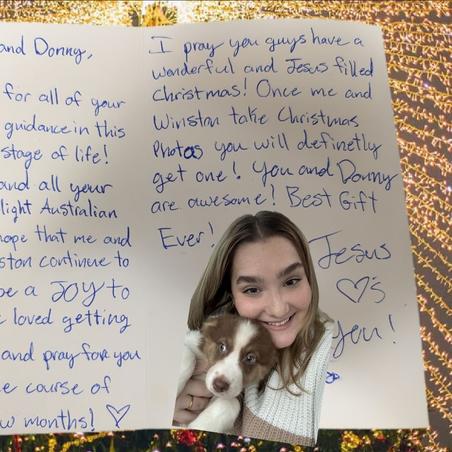 and Donny,
for all of your
guidance in this
stage of life!
and all your
light Australian
hope that me and
ston continue to
be a JOY to
loved getting
and pray for you
e course of
w months! ♡
I pray you guys have a
wonderful and Jesus filled
Christmas! Once me and
Winston take Christmas
Photos you will definetly
get one! You and Donny
are awesome! Best Gift
Ever!
Jesus
♡'s
you!